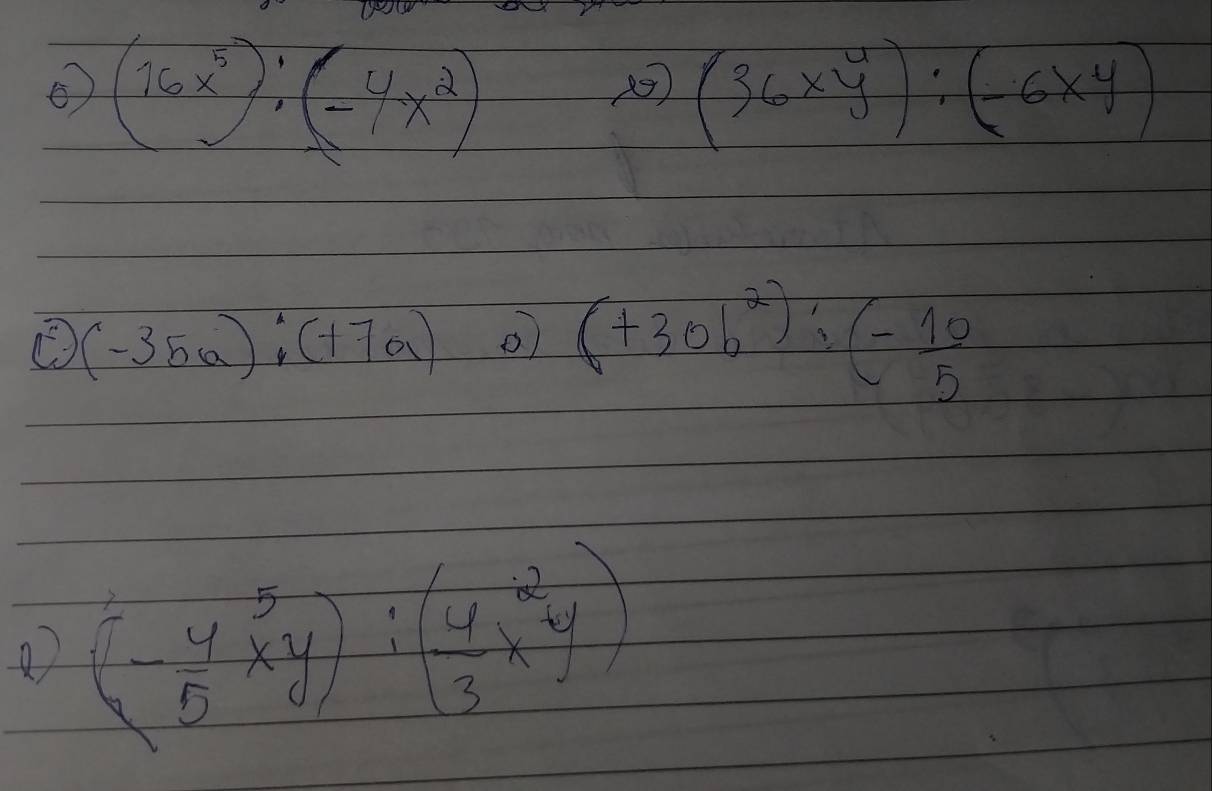 a) (16x⁵) : (-4x²) b) (36xy⁴) : (-6xy)
c) (-35a) : (+7a) d) (+30b²) : (-10/5
e) (-4/5 x⁵y) : (4/3 x²y)